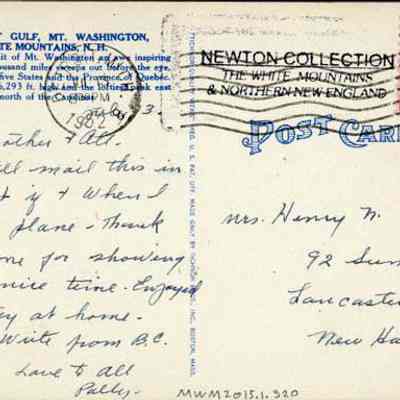 GULF, MT. WASHINGTON,
TE MOUNTAINS, N.H.
it of Mt. Washington an awe inspiring
ousand miles sweeps out before the eye,
five States and the Province of Quebec.
6,293 ft. high and the loftiest peak east
north of the Carolinas.
PM
NEWTON COLLECTION
THE WHITE MOUNTAINS
& NORTHERN NEW ENGLAND
POST CAR
July 3.
other & All.
ll mail this in
t if & When I
plane - Thank
me for showing
nice time. Enjoyed
y at home.
Write from B.C.
Love to All
Polly-
Mrs. Henry N.
92 Sum
Lancaster
New Ha
MWM2015.1.320